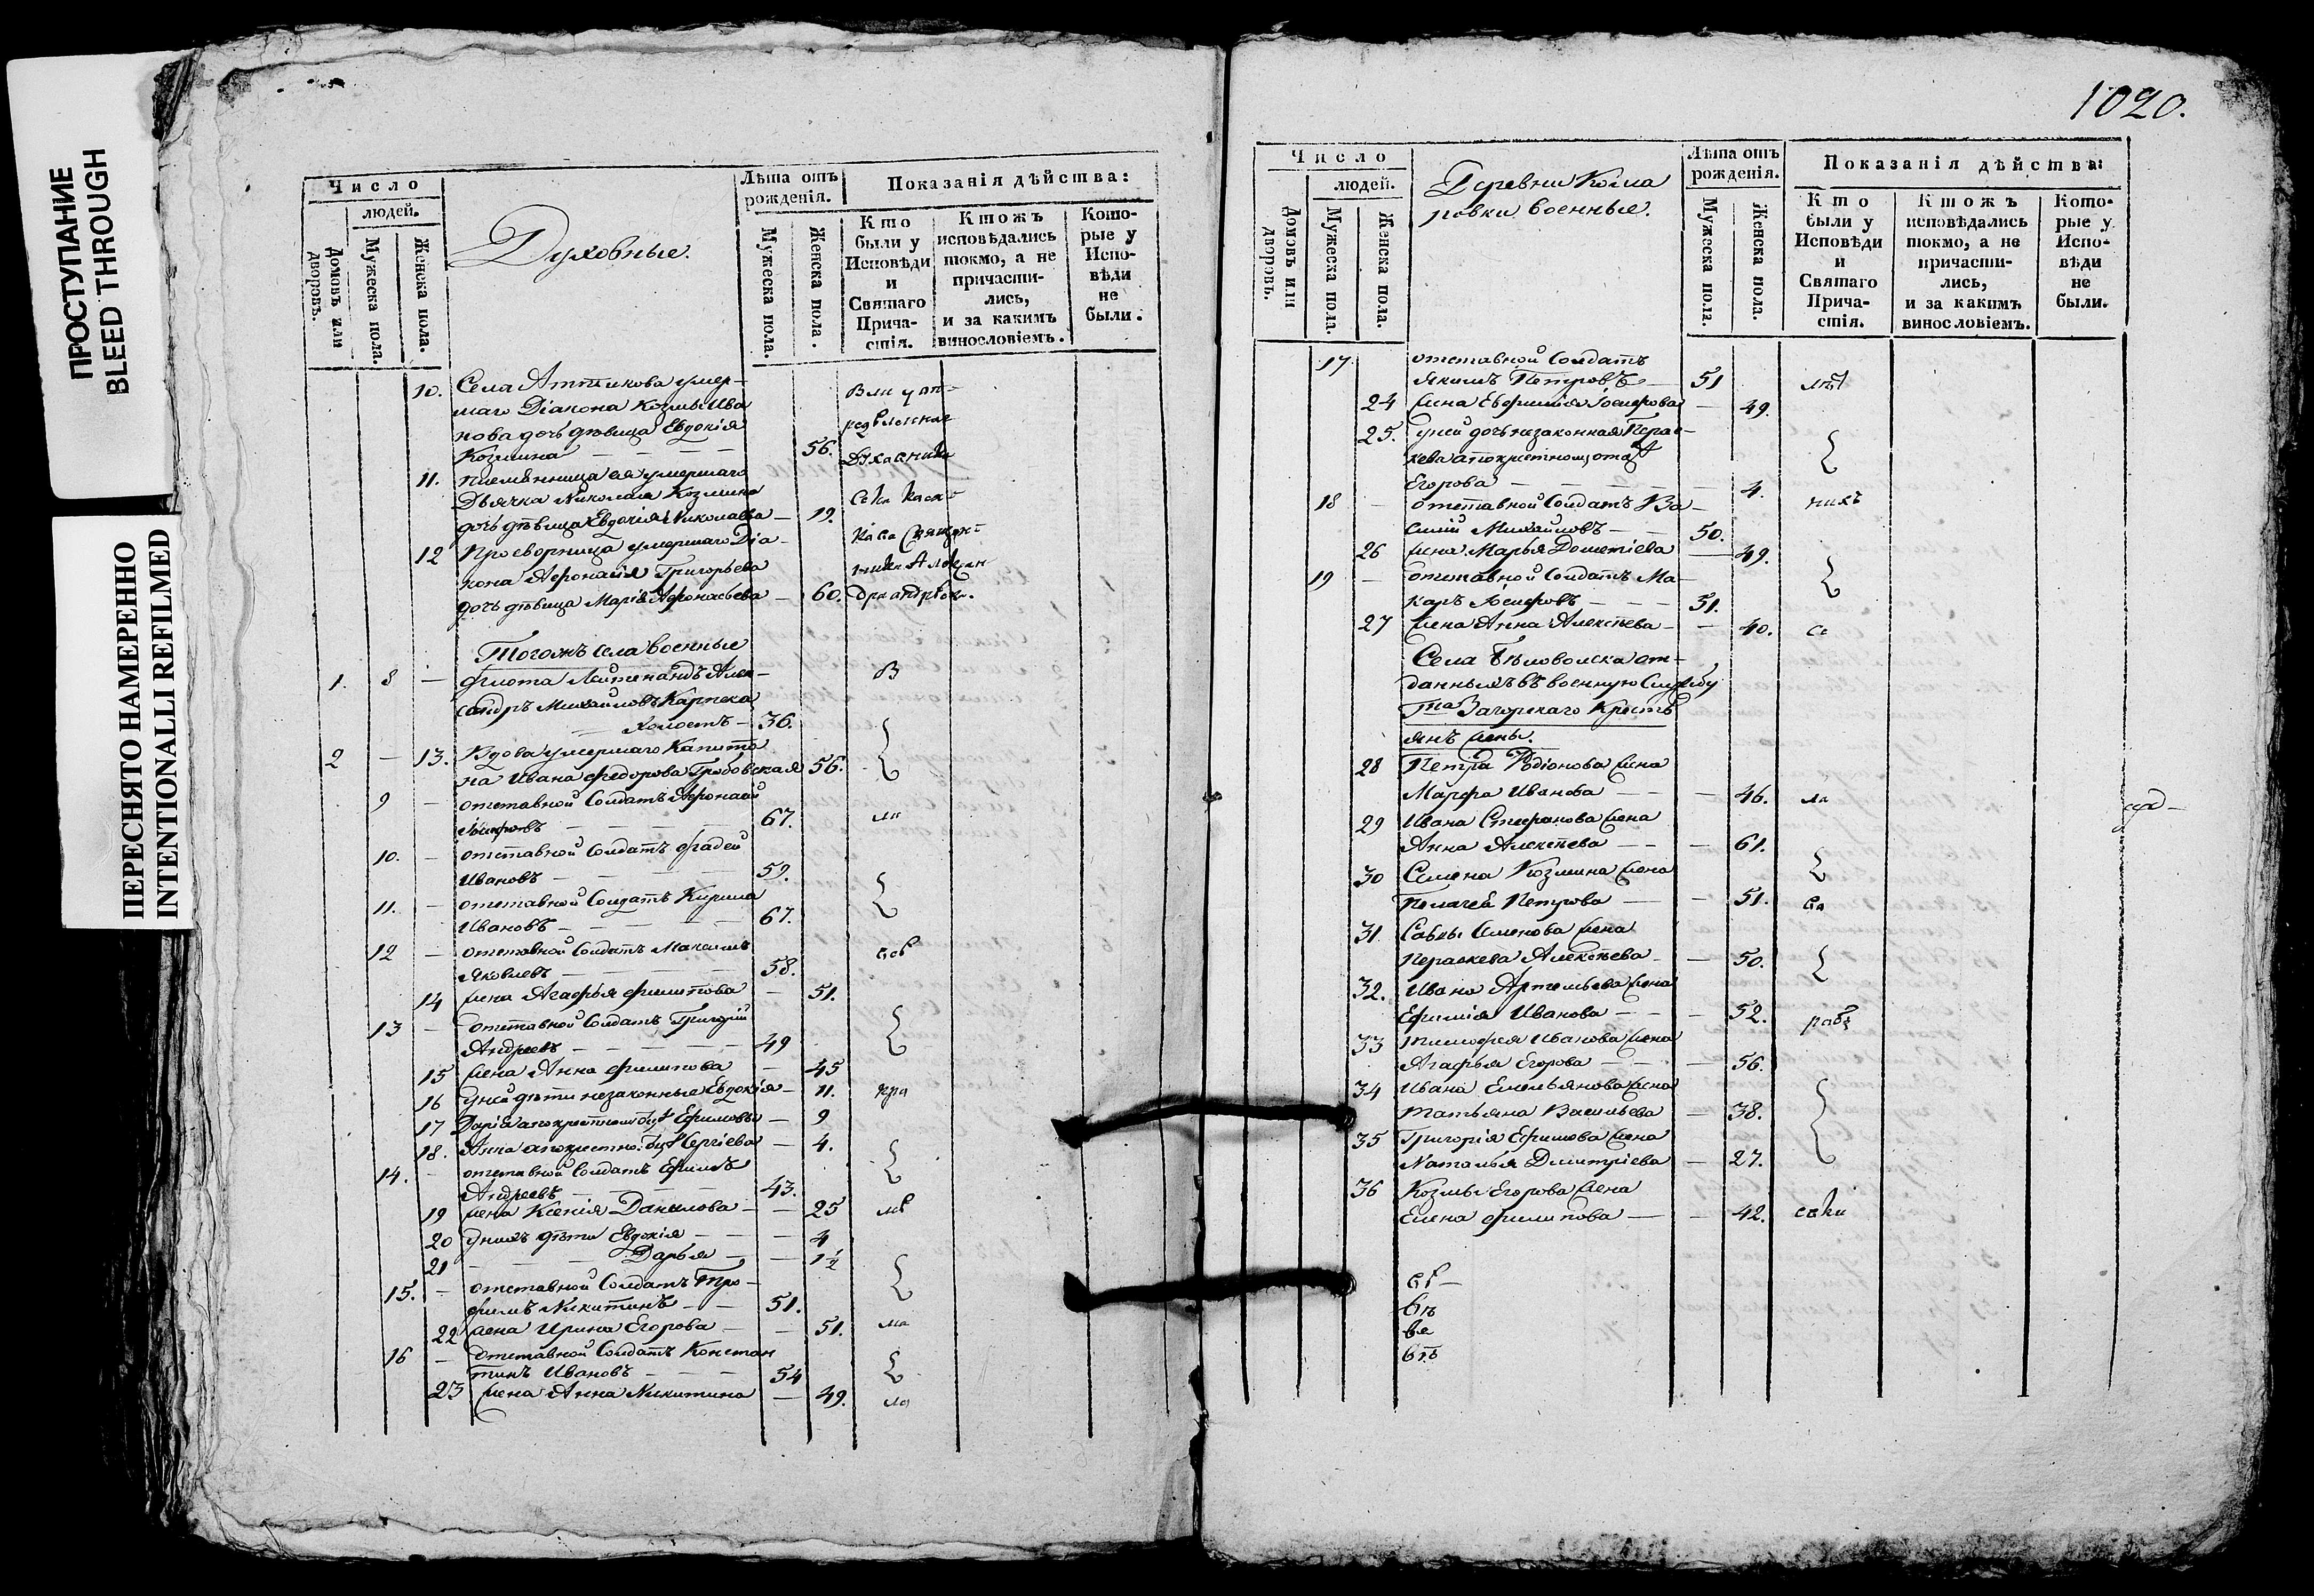 ПРОСТУПАНИЕ
BLEED THROUGH
ПЕРЕСНЯТО НАМЕРЕННО
INTENTIONALLI REFILMED
Число
людей.
Домовъ или дворовъ.
Мужеска пола.
Женска пола.
Духовные.
Лѣта отъ рожденія.
Мужеска пола.
Женска пола.
Показанія дѣйства:
Кто были у Исповѣди и Святаго Причастія.
Ктожъ исповѣдались токмо, а не причастились, и за какимъ винословіемъ.
Которые у Исповѣди не были.
10. Села умер-
шаго Діакона Козмы Ива
нова дочь дѣвица Евдокія
Козмина 56.
11. племянница ея умершаго
Дьячка Николая Козмина
дочь дѣвица Евдокія Николаева 19.
12 Просворница умершаго Діа-
кона Афонасія Григорьева
дочь дѣвица Марія Афонасьева 60.
Тогожъ села военные
1. 8 флота Лейтенандъ Алек-
сандръ Михайловъ
холостъ 36.
2 13. Вдова умершаго Капита
на Ивана Федорова 56.
9 отставной Солдатъ Афонасій
Іосифовъ 67.
10. отставной Солдатъ Фадей
Ивановъ 59.
11. отставной Солдатъ Кирила
Ивановъ 67.
12 отставной Солдатъ Максимъ
Яковлевъ 58.
14 жена Агафья Филипова 51.
13 отставной Солдатъ Григорій
Андреевъ 49
15 жена Анна Филипова 45
16 у ней дѣти незаконные Евдокія 11.
17 Дарія Ефимовы 9
18. Анна Сергіева 4.
14. отставной Солдатъ Ефимъ
Андреевъ 43.
19 жена Ксенія Данилова 25
20 у нихъ дѣти Евдокія 4
21 Дарья 1½
15. отставной Солдатъ Тро-
фимъ Никитинъ 51.
22 жена Ирина Егорова 51.
16 отставной Солдатъ Констан
тинъ Ивановъ 54
23 жена Анна Никитина 49.
1020.
Число
людей.
Домовъ или дворовъ.
Мужеска пола.
Женска пола.
Деревни Кома
ровки военные.
Лѣта отъ рожденія.
Мужеска пола.
Женска пола.
Показанія дѣйства:
Кто были у Исповѣди и Святаго Причастія.
Ктожъ исповѣдались токмо, а не причастились, и за какимъ винословіемъ.
Которые у Исповѣди не были.
17 отставной Солдатъ
Якимъ Петровъ 51
24 жена Евфимія Іосифова 49.
25. у ней дочь незаконная Парас-
кева
Егорова 4.
18 отставной Солдатъ Ва-
силій Михайловъ 50.
26 жена Марья Дометіева 49.
19 отставной Солдатъ Ма-
каръ Іосифовъ 51.
27 жена Анна Алексѣева 40.
Села от-
данныхъ въ военную Службу
Гна Загорскаго Кресть
янъ жены.
28 Петра Родіонова жена
Марфа Иванова 46.
29 Ивана Стефанова жена
Анна Алексѣева 61.
30 Семена Козмина жена
Пелагея Петрова 51.
31 Савы Семенова жена
Параскева Алексѣева 50.
32. Ивана Артемьева жена
Ефимія Иванова 52.
33 Тимофея Иванова жена
Агафья Егорова 56.
34 Ивана Емельянова жена
Татьяна Васильева 38.
35 Григорія Ефимова жена
Наталья Димитріева 27.
36 Козмы Егорова жена
Елена Филипова 42.